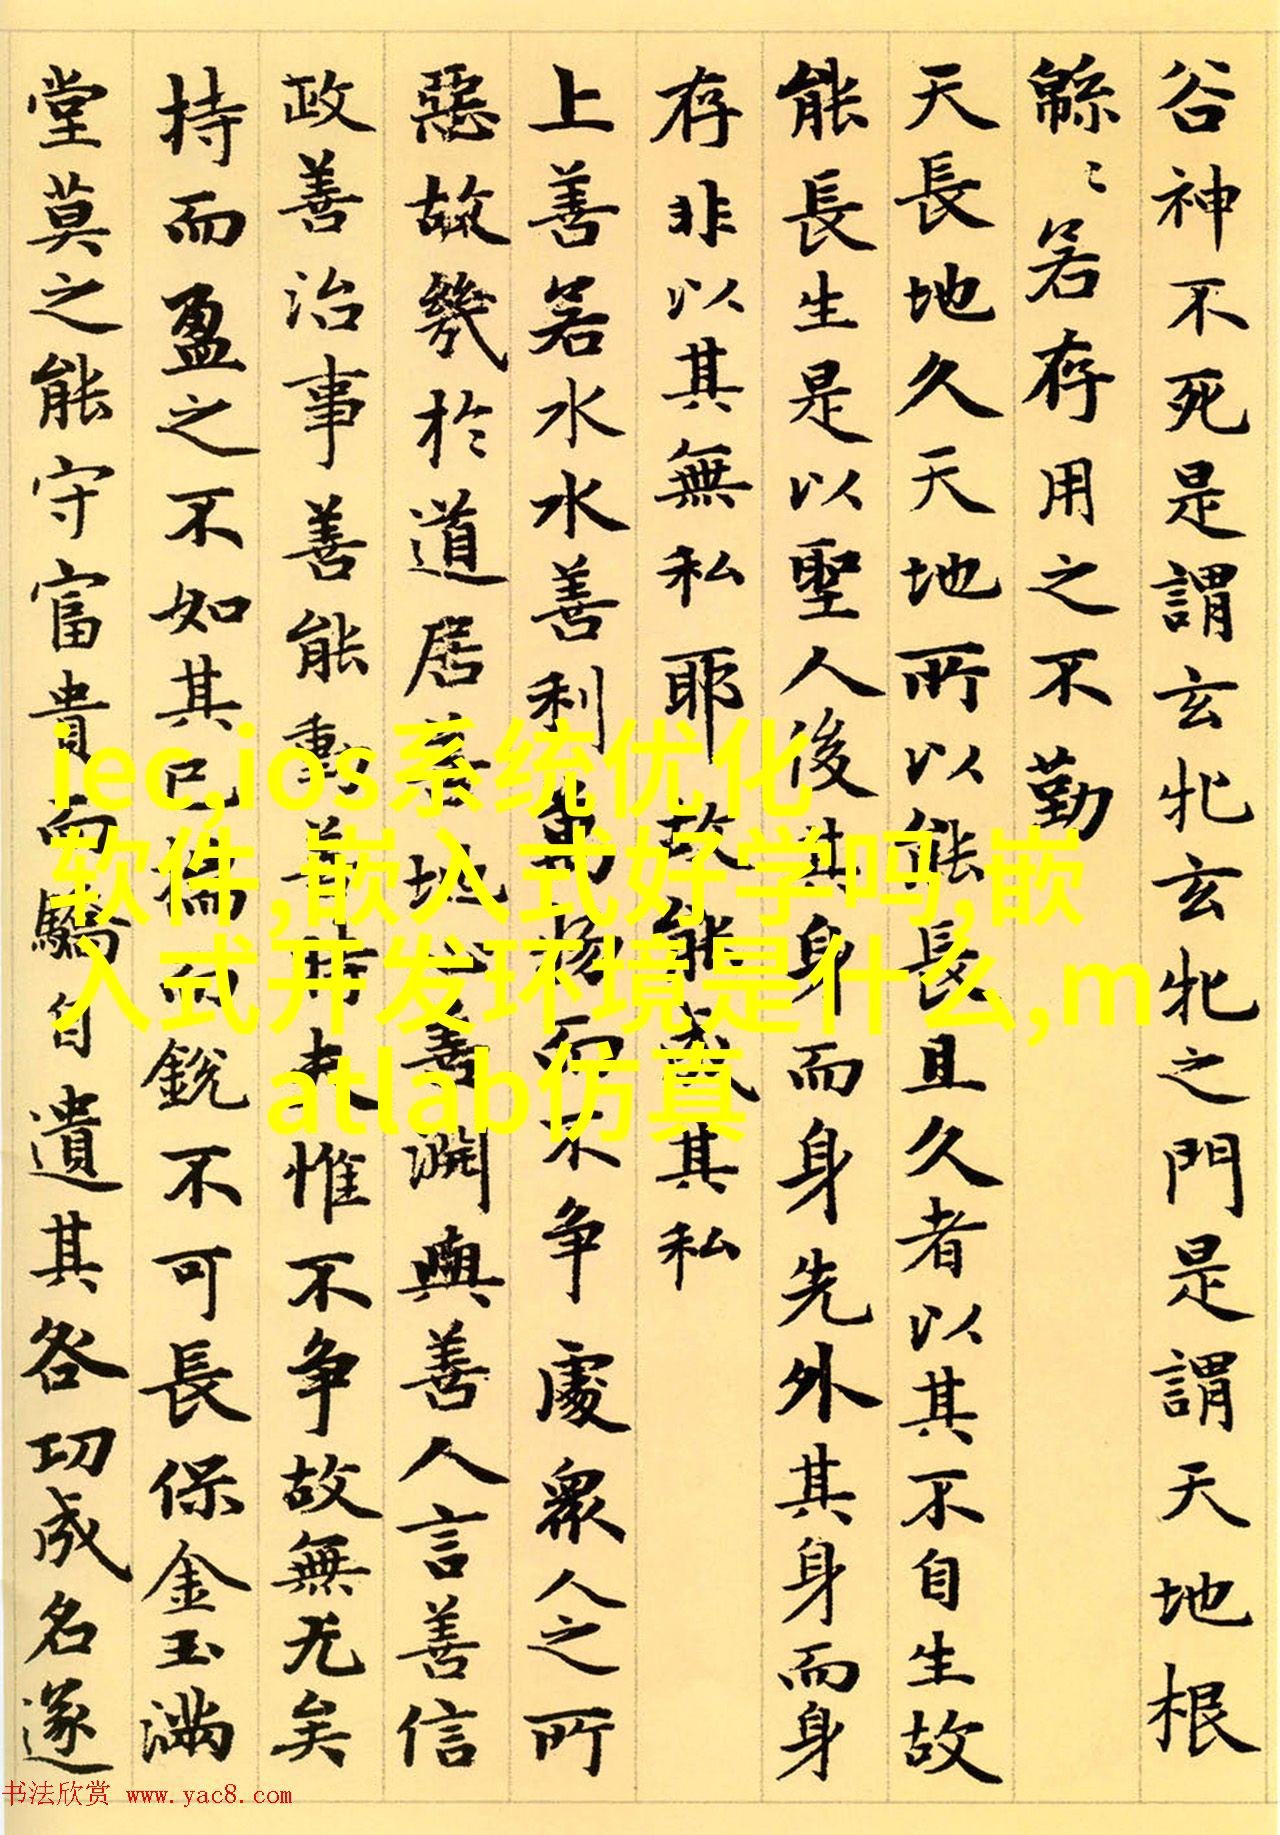 谷神不死是謂玄牝玄牝之門是謂天地根
緜〻若存用之不勤
天長地久天地所以能長且久者以其不自生故
能長生是以聖人後其身而身先外其身而身
存非以其無私耶故能成其私
上善若水水善利萬物而不争處衆人之所
惡故幾於道居善地心善渊與善人言善信
政善治事善能動善時夫惟不争故無尤矣
持而盈之不如其已揣而銳不可長保金玉滿
堂莫之能守富貴而驕自遺其咎功成名遂
iec,ios系统优化
软件,嵌入式好学吗,嵌
入式开发环境是什么,m
atlab仿真
书法欣赏 www.yac8.com